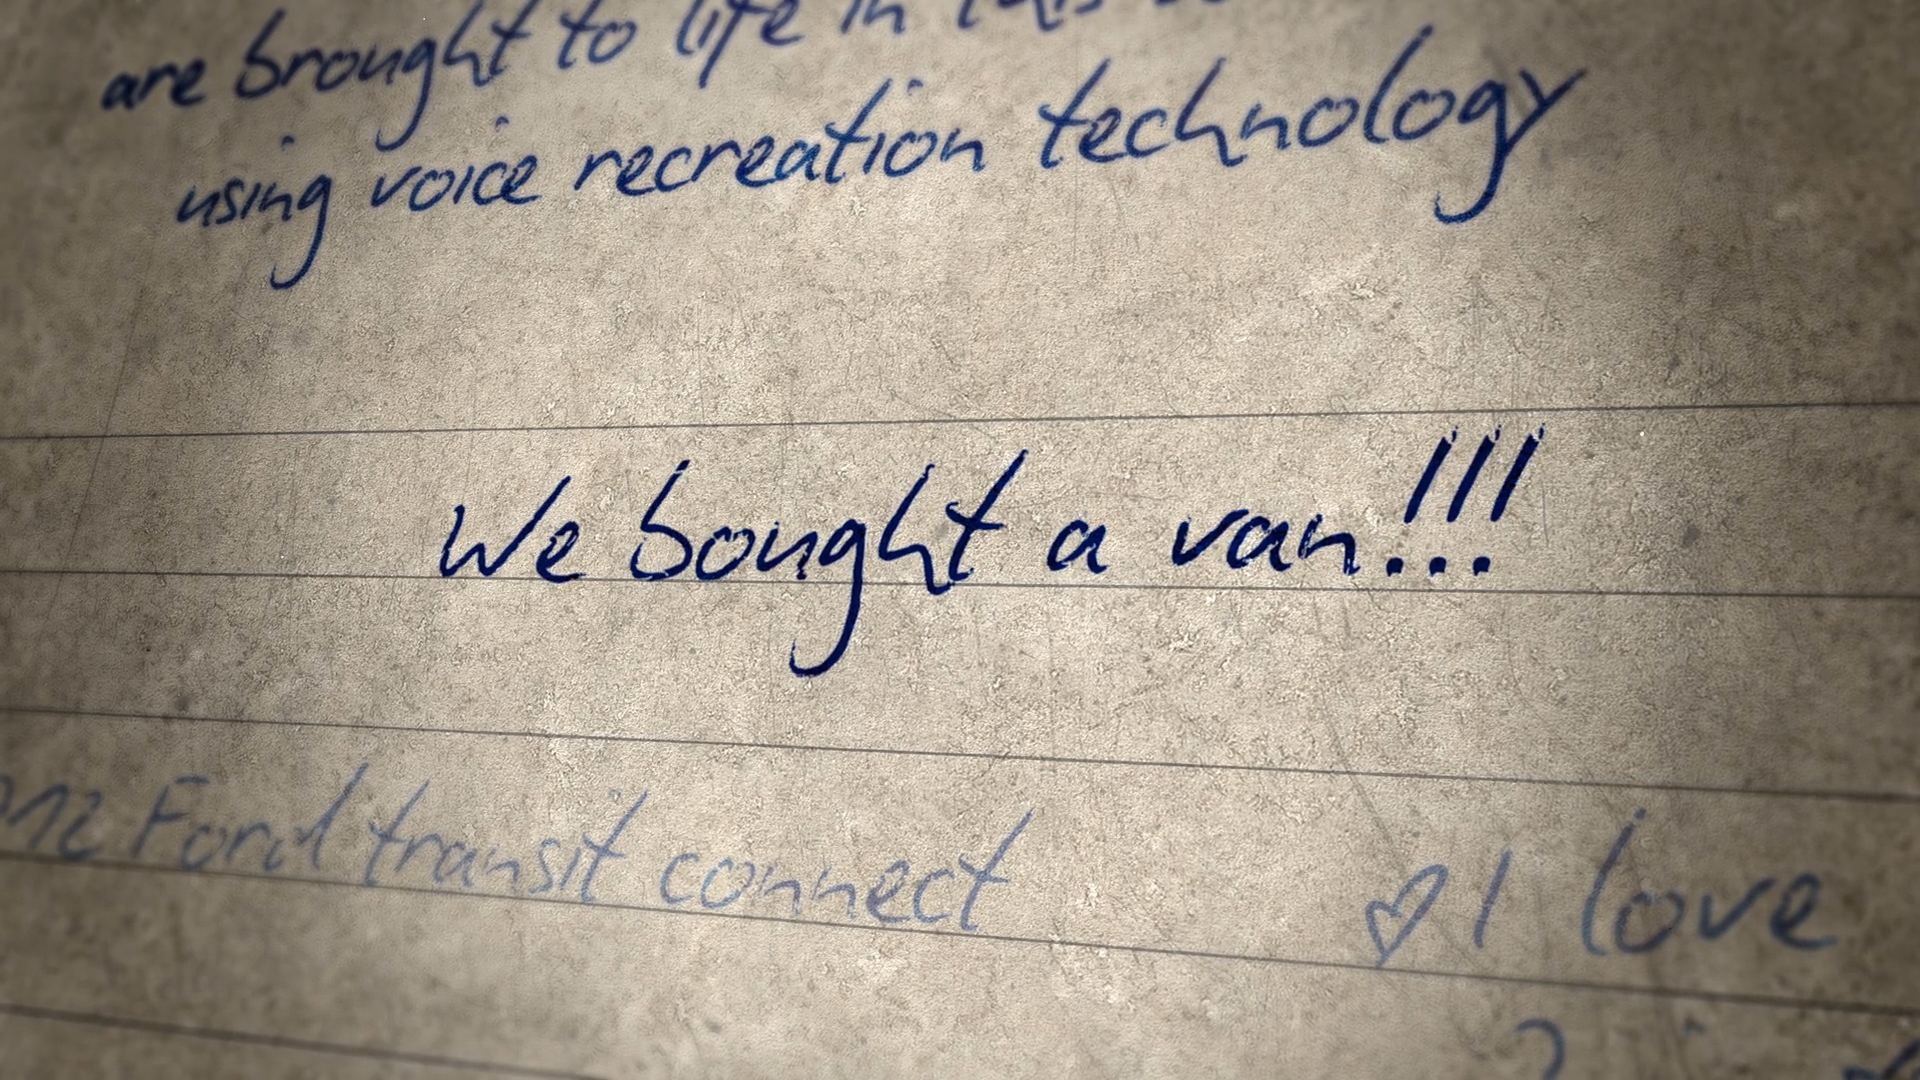 are brought to life in this
using voice recreation technology
We bought a van!!!
Ford transit connect
♡ I love